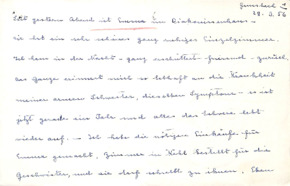 28. 2. 56
Seit gestern Abend ist Emma im Diakonissenhaus –
sie hat ein sehr schönes ganz ruhiges Einzelzimmer.
Ich kam in der Nacht – ganz erschüttert – frierend – zurück,
das Ganze erinnert mich so lebhaft an die Krankheit
meiner armen Schwester, dieselben Symptome – es ist
jetzt gerade ein Jahr und alles das Schwere lebt
wieder auf. – Ich habe die nötigen Einkäufe für
Emma gemacht, Zimmer in bestellt für die
Geschwister, und sie darf schnell zu ihnen. Eben